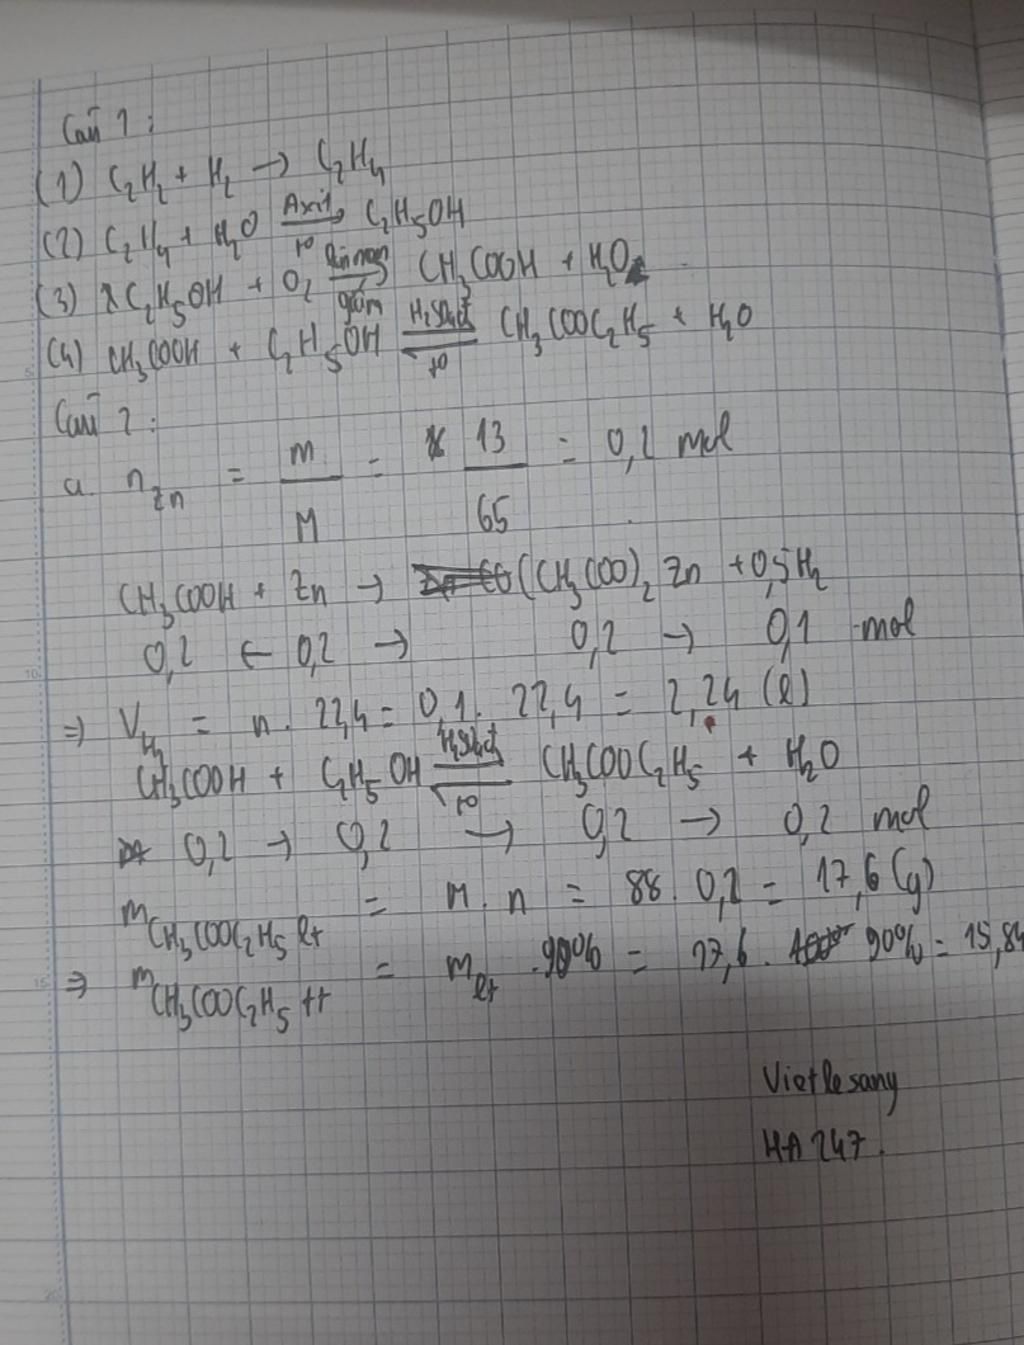 Câu 1:
(1) C₂H₂ + H₂ → C₂H₄
(2) C₂H₄ + H₂O Axit → t⁰ C₂H₅OH
(3) C₂H₅OH + O₂ men giấm → CH₃COOH + H₂O
(4) CH₃COOH + C₂H₅OH H₂SO₄đ ⇌ t⁰ CH₃COOC₂H₅ + H₂O
Câu 2:
a. n Zn = m/M = 13/65 = 0,2 mol
CH₃COOH + Zn → (CH₃COO)₂ Zn + 0,5H₂
0,2 ← 0,2 → 0,2 → 0,1 mol
⇒ V H₂ = n. 22,4 = 0,1. 22,4 = 2,24 (l)
CH₃COOH + C₂H₅OH H₂SO₄đ ⇌ t⁰ CH₃COOC₂H₅ + H₂O
0,2 → 0,2 → 0,2 → 0,2 mol
m CH₃COOC₂H₅ lt = M. n = 88. 0,2 = 17,6 (g)
⇒ m CH₃COOC₂H₅ tt = m lt .90% = 17,6. 90% = 15,84
Vietlesany
HA 247.